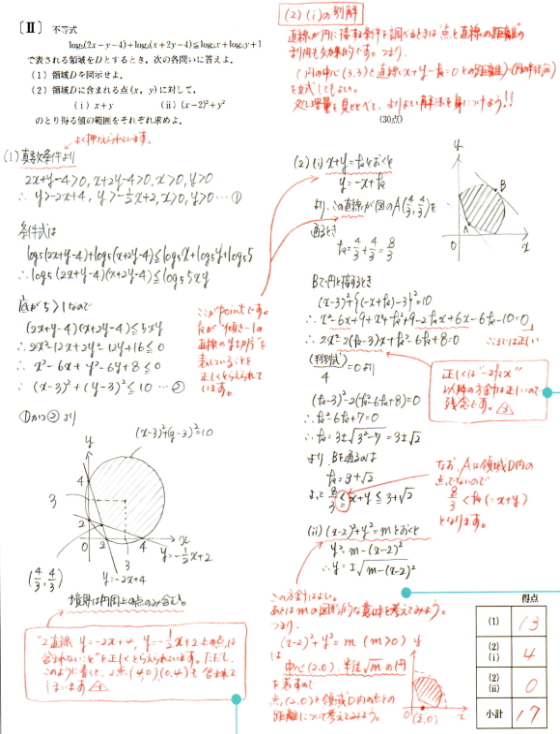 〔Ⅱ〕 不等式
log₅(2x－y－4)＋log₅(x＋2y－4)≦log₅x＋log₅y＋1
で表される領域をDとするとき，次の各問いに答えよ。
(1) 領域Dを図示せよ。
(2) 領域Dに含まれる点(x, y)に対して，
(i) x＋y (ii) (x－2)²＋y²
のとり得る値の範囲をそれぞれ求めよ。
(30点)
(2)(i)の別解
直線が円に接する条件を調べるときは"点と直線の距離"の
利用も効果的です。つまり、
(円の中心(3,3)と直線x+y-k=0との距離)=(円の半径√10)
を立式してもよい。
よく押さえられています。
(1) 真数条件より
2x+y-4>0, x+2y-4>0, x>0, y>0
∴ y>-2x+4, y>-1/2x+2, x>0, y>0 … ①
条件式は
log₅(2x+y-4)+log₅(x+2y-4)≦log₅x+log₅y+log₅5
∴ log₅(2x+y-4)(x+2y-4)≦log₅5xy
底が5>1なので
(2x+y-4)(x+2y-4)≦5xy
∴ 2x²-12x+2y²-12y+16≦0
∴ x²-6x+y²-6y+8≦0
∴ (x-3)²+(y-3)²≦10 … ②
①かつ②より
(x-3)²+(y-3)²=10
y
4
3
2
0
2
3
4
x
y=-1/2x+2
y=-2x+4
(4/3, 4/3)
境界は円周上の点のみ含む。
"2直線 y=-2x+4, y=-1/2x+2上の点は
含まれない"を正しくとらえられています。ただし、
このように書くと、2点(4,0)(0,4)も含まれて
しまいます
ここがpointです。
kが"傾き-1の
直線のy切片"を
表していることを
正しくとらえられて
います。
(2)(i) x+y=kとおくと
y=-x+k
より、この直線が図のA(4/3, 4/3)を
通るとき
k=4/3+4/3=8/3
y
B
A
0
x
Bで円と接するとき
(x-3)²+{(-x+k)-3}²=10
∴ x²-6x+9+x²+k²+9-2kx+6x-6k-10=0
∴ 2x²-2(k-3)x+k²-6k+8=0
ここは正しい
(判別式)/4=0より
(k-3)²-2(k²-6k+8)=0
∴ k²-6k+7=0
∴ k=3±√3²-7=3±√2
より Bを通るのは
k=3+√2
よって 8/3≦x+y≦3+√2
正しくは"-2kx"
以降の方針は正しいので
残念です。
なお、Aは領域D内の
点でないので
8/3<k(=x+y)
となります。
(ii) (x-2)²+y²=mとおくと
y²=m-(x-2)²
∴ y=±√m-(x-2)²
この方針はよい。
あとはmの図形的な意味を考えてみよう。
つまり、
(x-2)²+y²=m (m>0)
は
中心(2,0)、半径√mの円
を表すので
点(2,0)と領域D内の点との
距離について考えてみよう。
y
0
(2,0)
x
得点
(1) 13
(2)(i) 4
(2)(ii) 0
小計 17